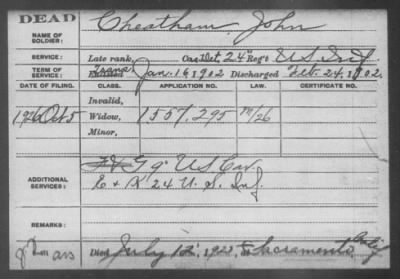 DEAD
NAME OF SOLDIER:
Cheatham, John
SERVICE:
Late rank, Cas Det, 24th Reg't U.S. Inf.
TERM OF SERVICE:
Trans
Enlisted Jan. 16 1902 Discharged Feb. 24, 1902.
DATE OF FILING. CLASS. APPLICATION NO. LAW. CERTIFICATE NO.
Invalid,
1926 Oct 5 Widow, 1557,295
Minor,
ADDITIONAL SERVICES:
G 9" U S Cav.
E + K 24 U. S. Inf.
REMARKS:
Died July 12, 1922, at Sacramento Calif